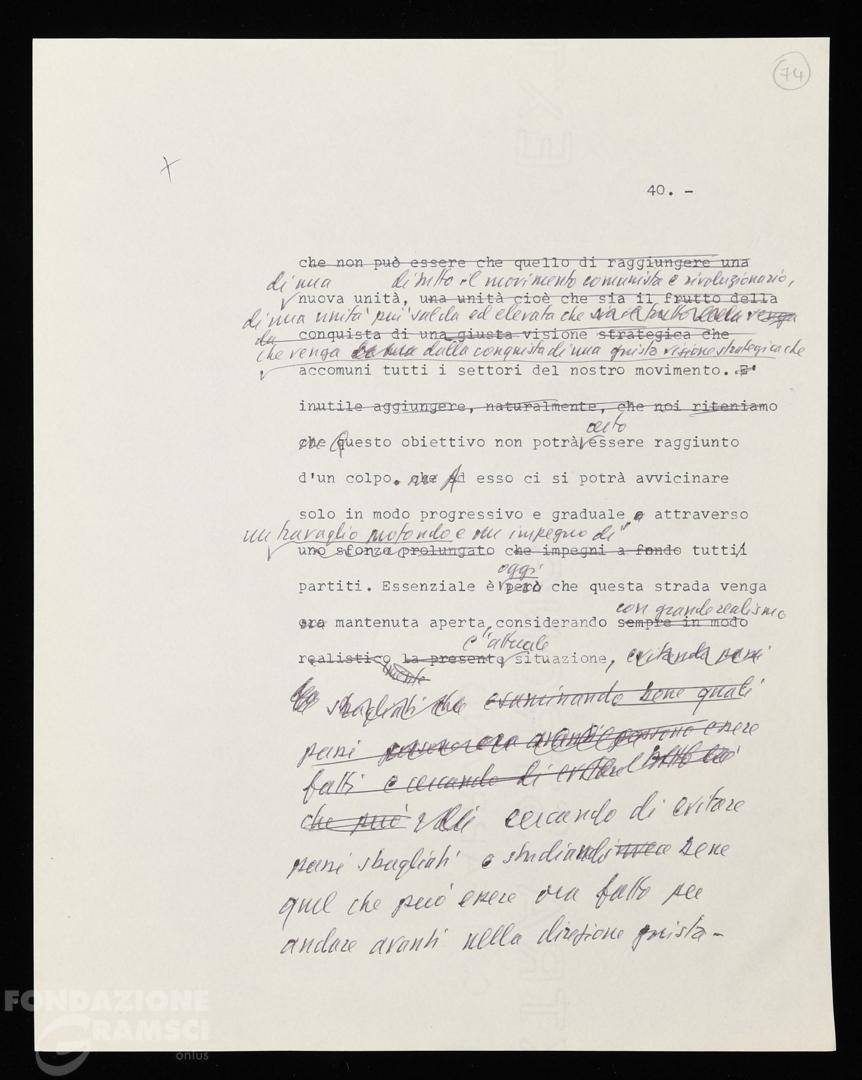 74
40. -
che non può essere che quello di raggiungere una
di una di tutto il movimento comunista e rivoluzionario,
nuova unità, una unità cioè che sia il frutto della
di una unità più salda ed elevata che sia il frutto della venga
da
conquista di una giusta visione strategica che
che venga dalla conquista di una giusta visione strategica che
accomuni tutti i settori del nostro movimento. E'
inutile aggiungere, naturalmente, che noi riteniamo
certo
che Questo obiettivo non potrà essere raggiunto
d'un colpo. che Ad esso ci si potrà avvicinare
solo in modo progressivo e graduale e attraverso
un travaglio profondo e un impegno di
uno sforzo prolungato che impegni a fondo tutti i
oggi
partiti. Essenziale è però che questa strada venga
con grande realismo
ora mantenuta aperta, considerando sempre in modo
l'attuale
realistico la presente situazione, evitando passi
sbagliati che esaminando bene quali
passi possono essere
fatti e cercando di evitare tutto ciò
che può cercando di evitare
passi sbagliati e studiando invece bene
quel che può essere ora fatto per
andare avanti nella direzione giusta -
FONDAZIONE
GRAMSCI
onlus